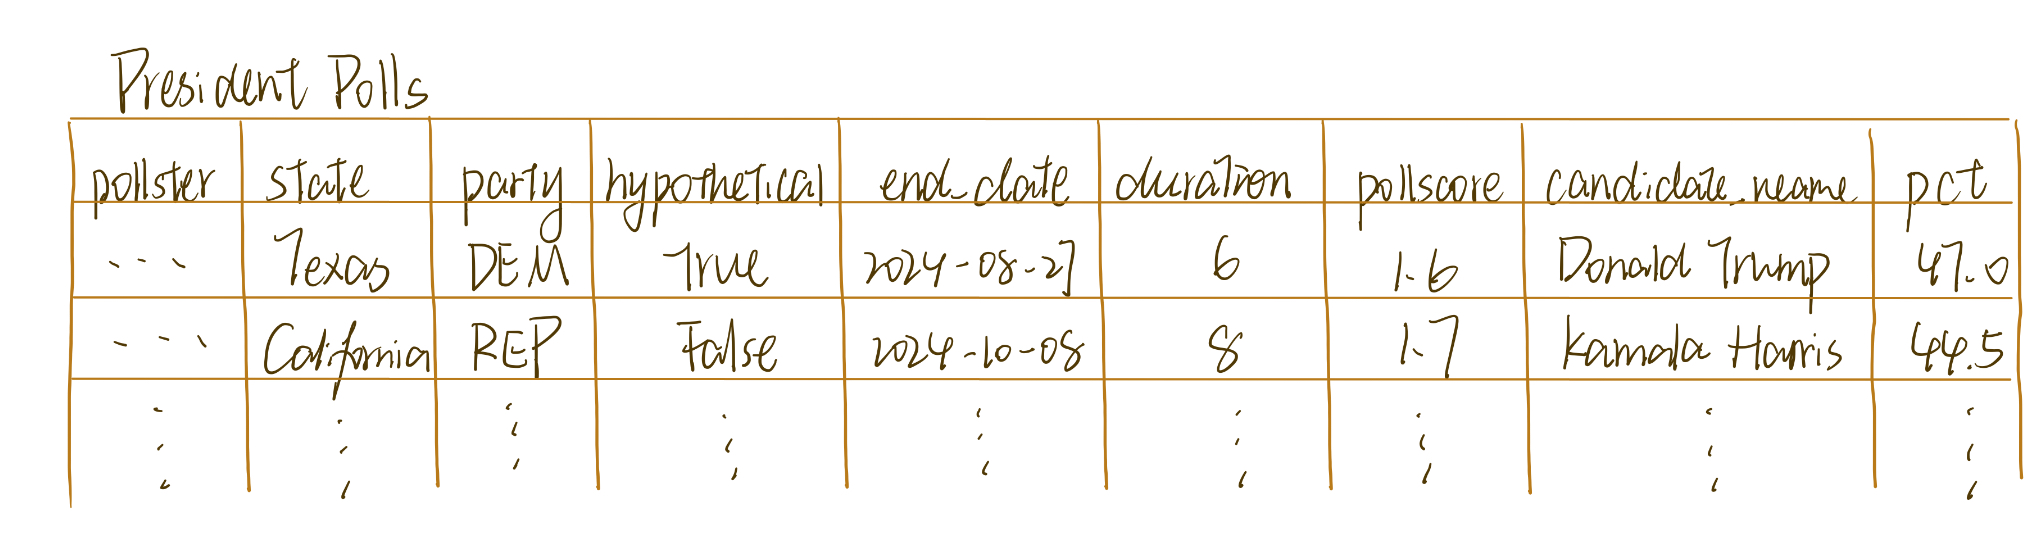 President Polls
pollster state party hypothetical end_date duration pollscore candidate_neame pct
... Texas DEM True 2024-08-27 6 1.6 Donald Trump 47.0
... California REP False 2024-10-08 8 1.7 Kamala Harris 44.5